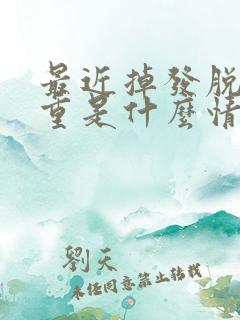 最近掉發脫
重是什麼情
劉天
未經同意禁止轉載